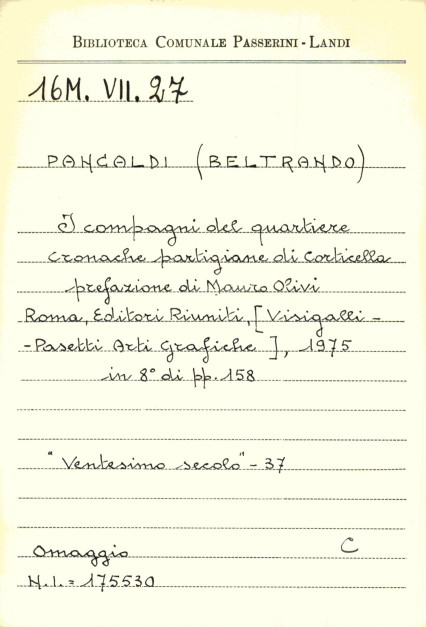 BIBLIOTECA COMUNALE PASSERINI - LANDI
16M. VII. 27
PANCALDI (BELTRANDO)
I compagni del quartiere
cronache partigiane di Corticella
prefazione di Mauro Olivi
Roma, Editori Riuniti, [Visigalli -
-Pasetti Arti Grafiche], 1975
in 8° di pp. 158
"Ventesimo secolo" - 37
Omaggio C
N.I. = 175530